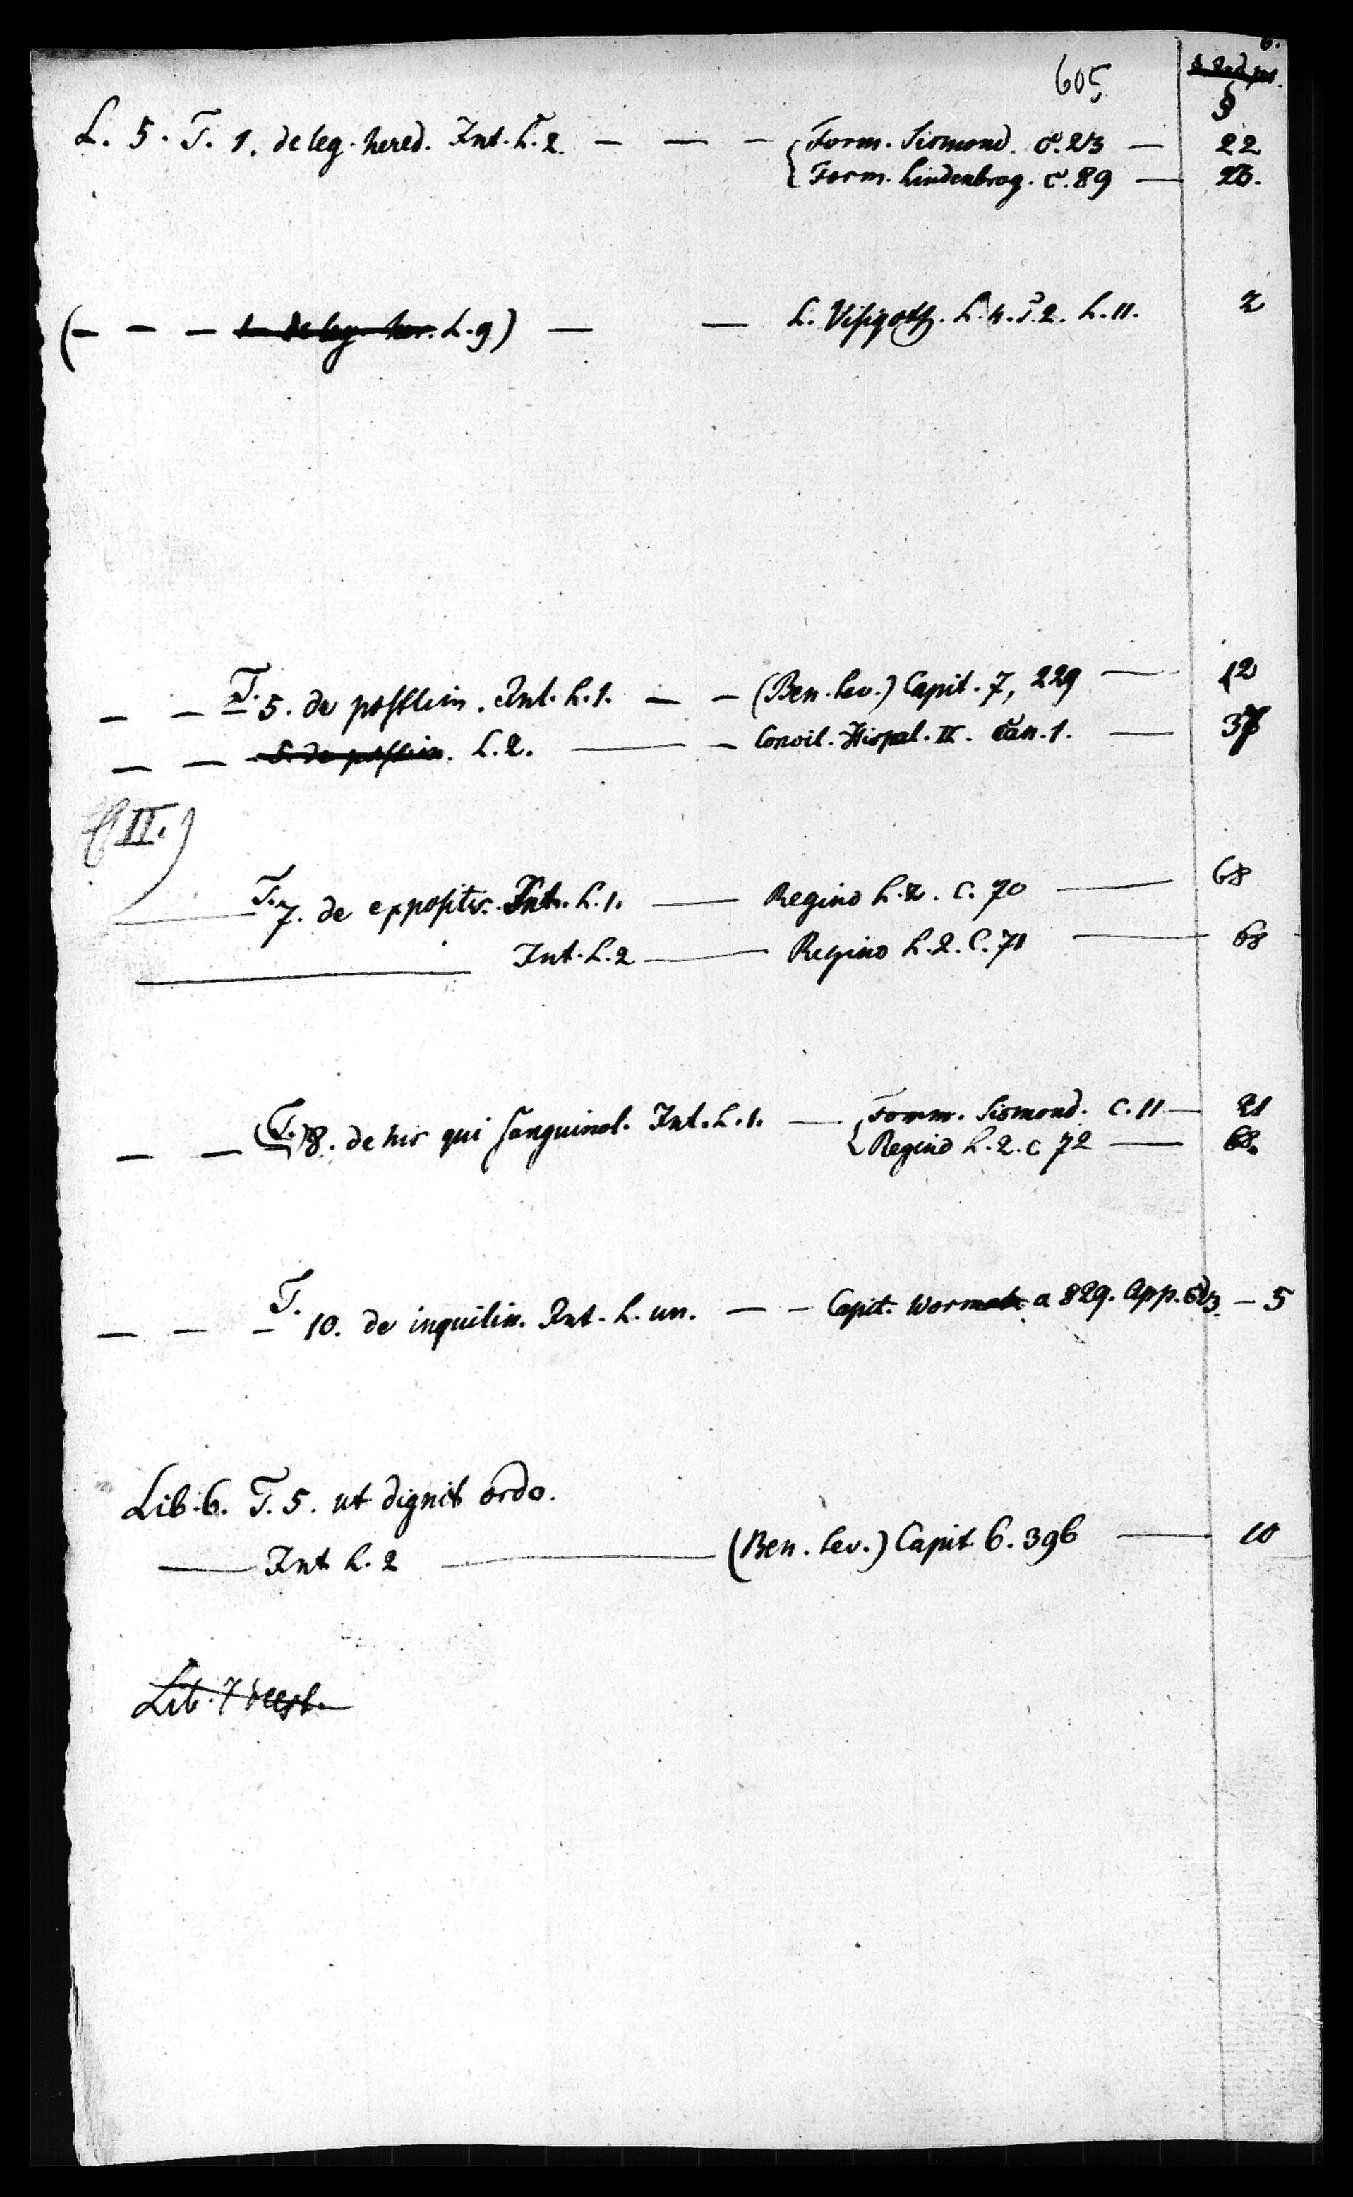 605
§
L. 5. T. 1. de leg. hered. Int. L. 2 — — — { Form. Sirmond. c. 23 — 22
Form. Lindenbrog. c. 89 — 26.
(— — — 1. de leg. her. L. 9) — — L. Visigoth. L. 4. T. 2. L. 11. 2
— — — T. 5. de postlim. Int. L. 1. — — (Ben. lev.) Capit. 7, 229 — 12
— — 5. de postlim. L. 2. — — Concil. Hispal. II. Can. 1. — 37
(II.)
— T. 7. de expositis. Int. L. 1. — Regino L. 2. C. 70 — 68
— Int. L. 2 — Regino L. 2. C. 71 — 68
— — (T.) 8. de his qui sanguinol. Int. L. 1. — { Form. Sirmond. C. 11 — 21
Regino L. 2. c 72 — 68.
— — — T. 10. de inquilin. Int. L. un. — — Capit. Wormat. a 829. App. — 5
Lib. 6. T. 5. ut dignit ordo.
— Int L. 2 — (Ben. lev.) Capit 6. 396 — 10
Lib. 7 deest.